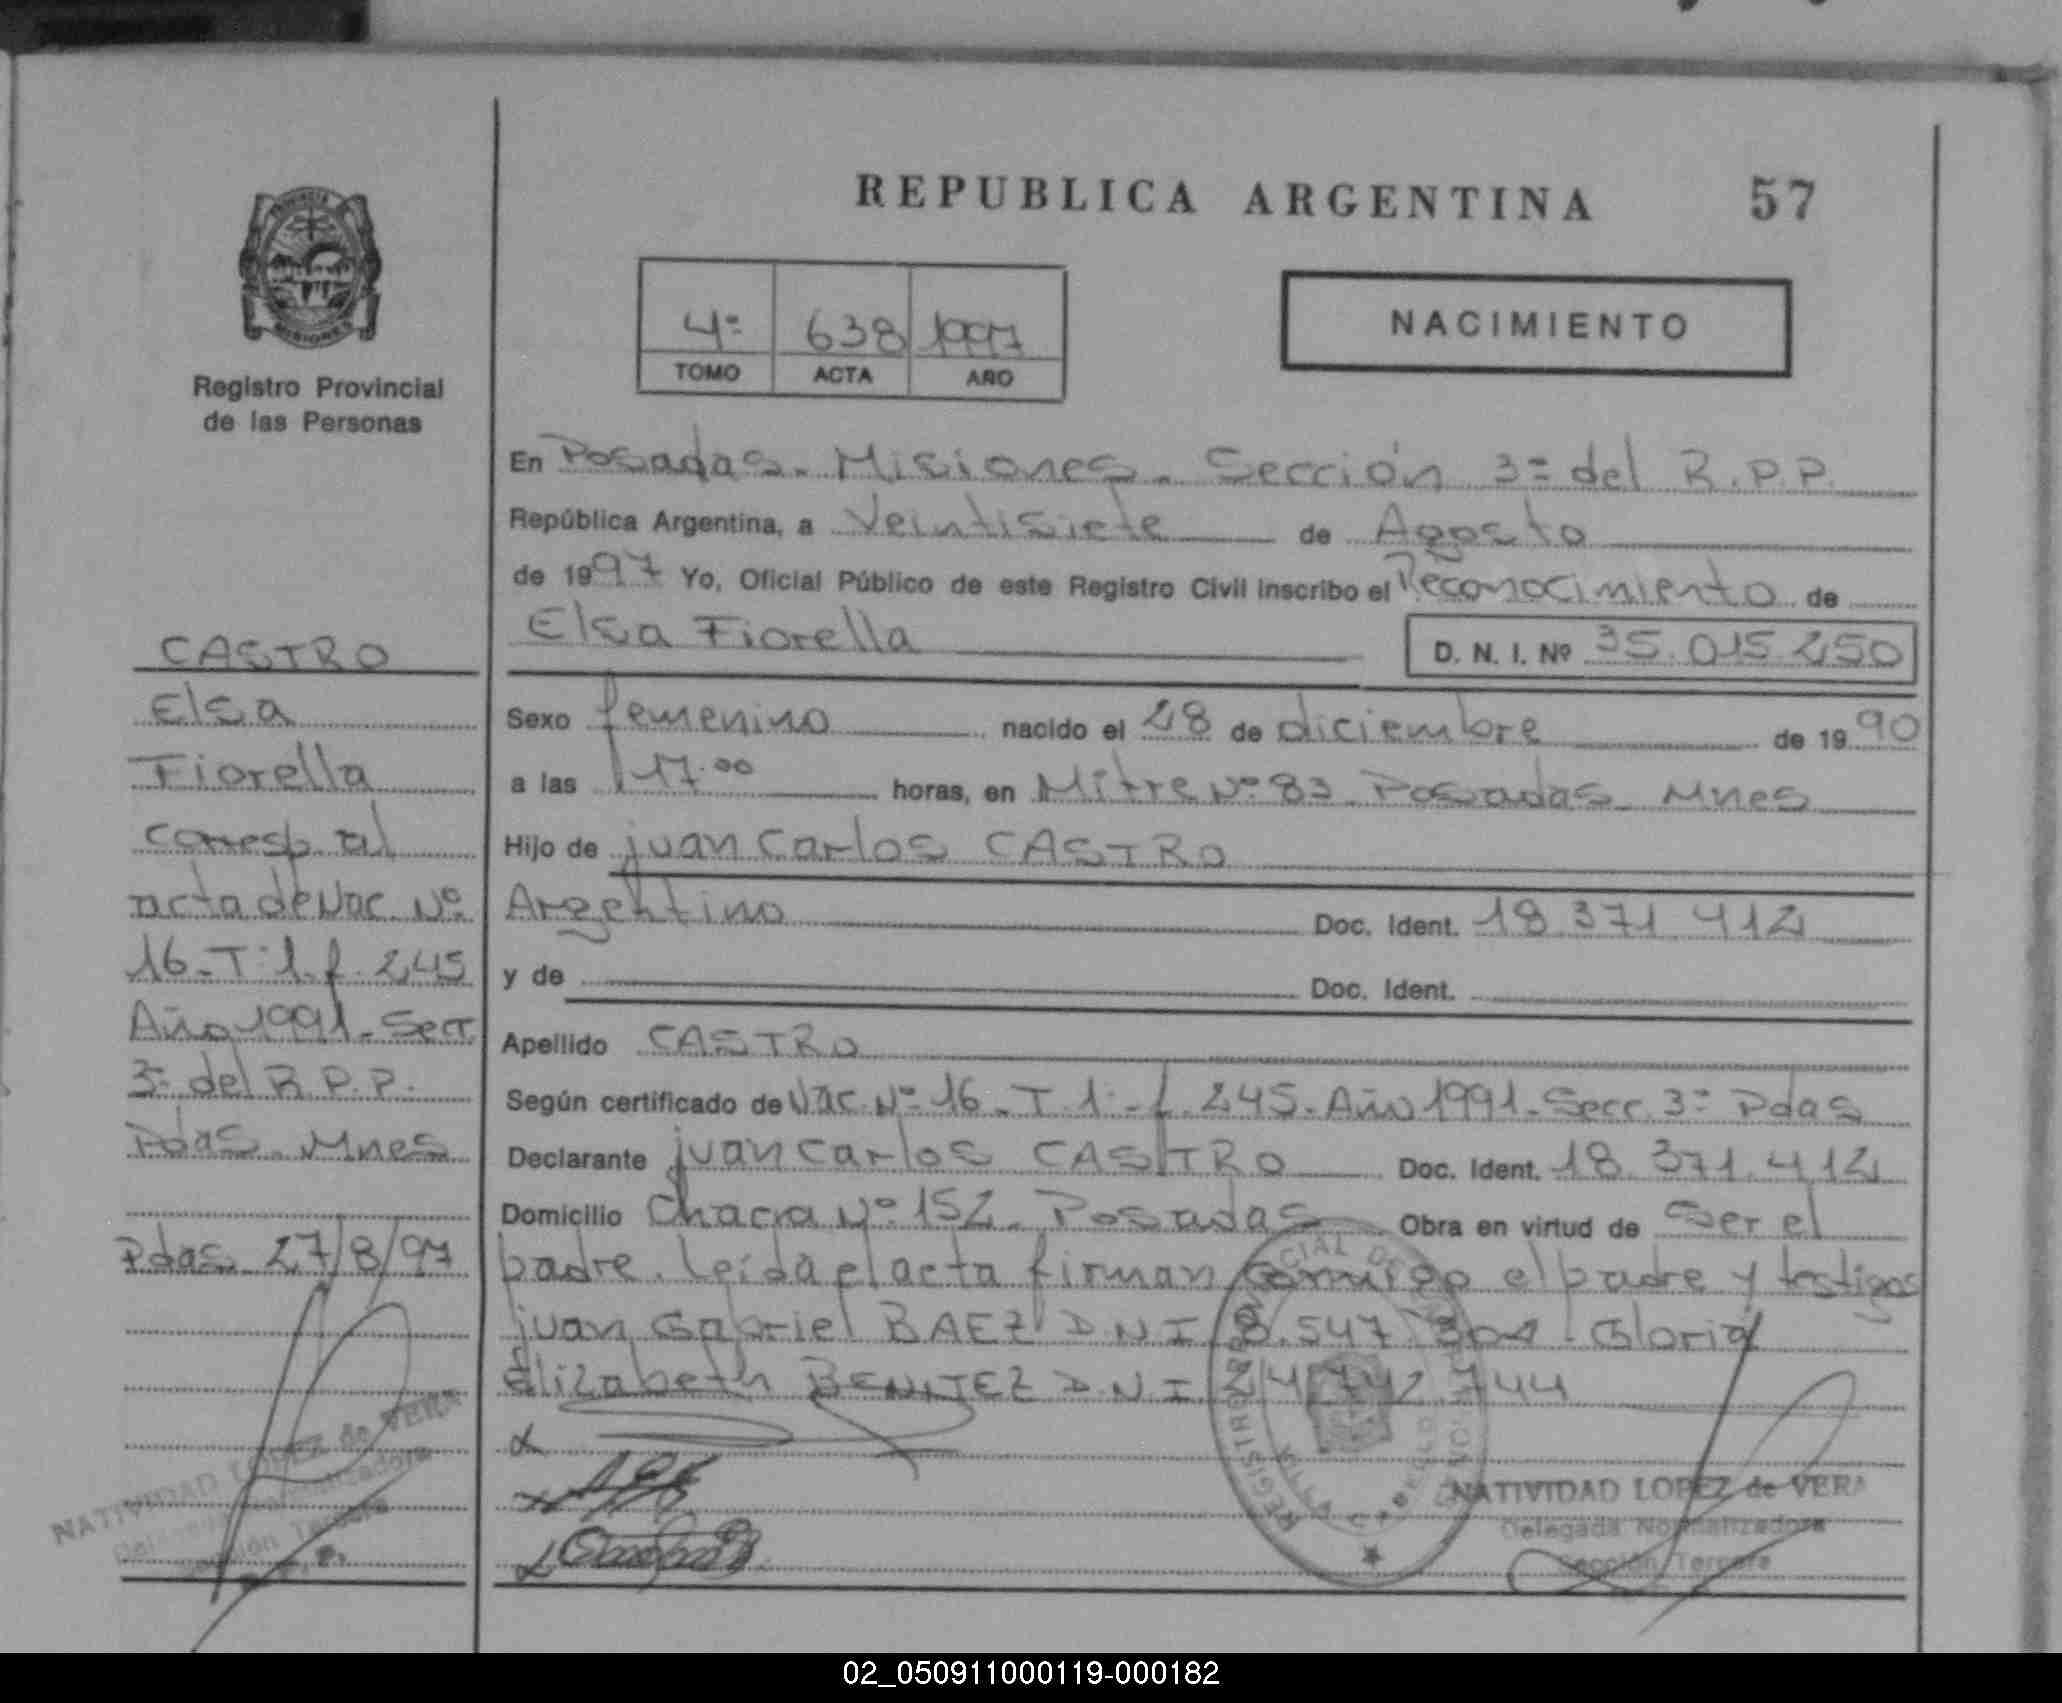 REPUBLICA ARGENTINA 57
PROVINCIA
MISIONES
Registro Provincial
de las Personas
4º 638 1997
TOMO ACTA AÑO
NACIMIENTO
CASTRO
Elsa
Fiorella
corresp. al
acta de Nac. Nº
16 - T: 1. f. 245
Año 1991 - Secc.
3º del R.P.P.
Pdas. Mnes
Pdas 27/8/97
NATIVIDAD LOPEZ de VERA
Delegada Normalizadora
Sección Tercera
En Posadas. Misiones. Sección 3º del R.P.P.
República Argentina, a Veintisiete de Agosto
de 1997 Yo, Oficial Público de este Registro Civil inscribo el Reconocimiento de
Elsa Fiorella D. N. I. Nº 35.015.250
Sexo femenino nacido el 28 de diciembre de 1990
a las 17.00 horas, en Mitre Nº 83 Posadas Mnes
Hijo de juan Carlos CASTRO
Argentino Doc. Ident. 18.371.412
y de Doc. Ident.
Apellido CASTRO
Según certificado de Nac. Nº 16 - T. 1 - f. 245. Año 1991 - Secc. 3º Pdas
Declarante juan Carlos CASTRO Doc. Ident. 18.371.412
Domicilio Chacra Nº 152. Posadas Obra en virtud de Ser el
padre. Leída el acta firman conmigo el padre y testigos
juan Gabriel BAEZ D.N.I. 8.547.304 - Gloria
Elizabeth BENITEZ D.N.I.
NATIVIDAD LOPEZ de VERA
Delegada Normalizadora
Sección Tercera
02_050911000119-000182